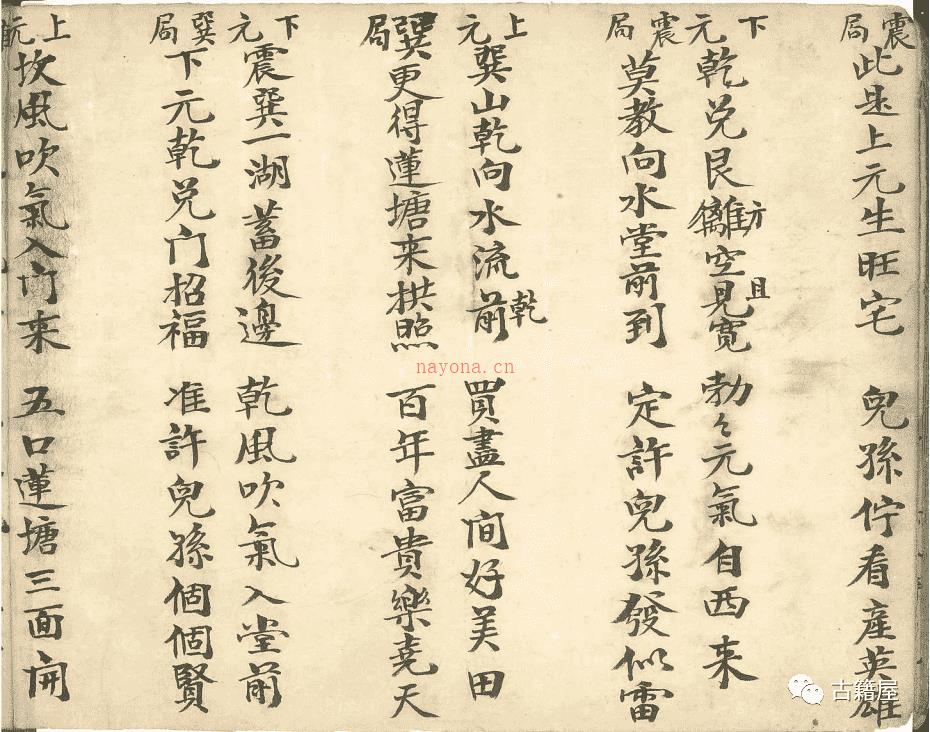 震局
此是上元生旺宅 兒孫佇看産英雄
下元震局
乾兌艮離方空見且寬 勃々元氣自西来
莫教向水堂前到 定許兒孫發似雷
上元巽局
巽山乾向水流前乾 買盡人间好美田
巽更得蓮塘来拱照 百年富貴樂堯天
下元巽局
震巽一湖蓄後邊 乾風吹氣入堂前
下元乾兌门招福 准許兒孫個個賢
上元
坎風吹氣入门来 五口蓮塘三面開
nayona.cn
古籍屋